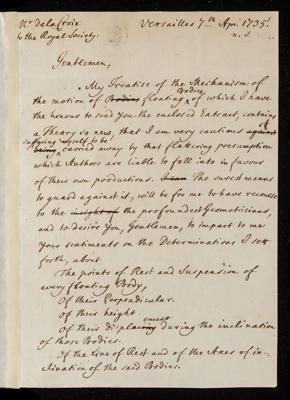 Mr. de la Croix
to the Royal Society.
Versailles 7th. Apr. 1735.
n. s.
Gentlemen,
My Treatise of the Mechanism of
the motion of Bodies floating Bodies, of which I have
the honour to send you the enclosed Extract, contains
a Theory so new, that I am very cautious against of
suffering myself to be
being carried away by that flattering presumption
which Authors are liable to fall into in favour
of their own productions. I can The surest means
to guard against it, will be for me to have recourse
to the insight of the profoundest Geometricians,
and to desire You, Gentlemen, to impart to me
Your sentiments on the Determinations I sett
forth, about
The points of Rest and Suspension of
every floating Body,
Of their Perpendicular.
Of their height.
Of their displacing cement during the inclination
of those Bodies.
Of the Line of Rest and of the Axes of in-
clination of the said Bodies.